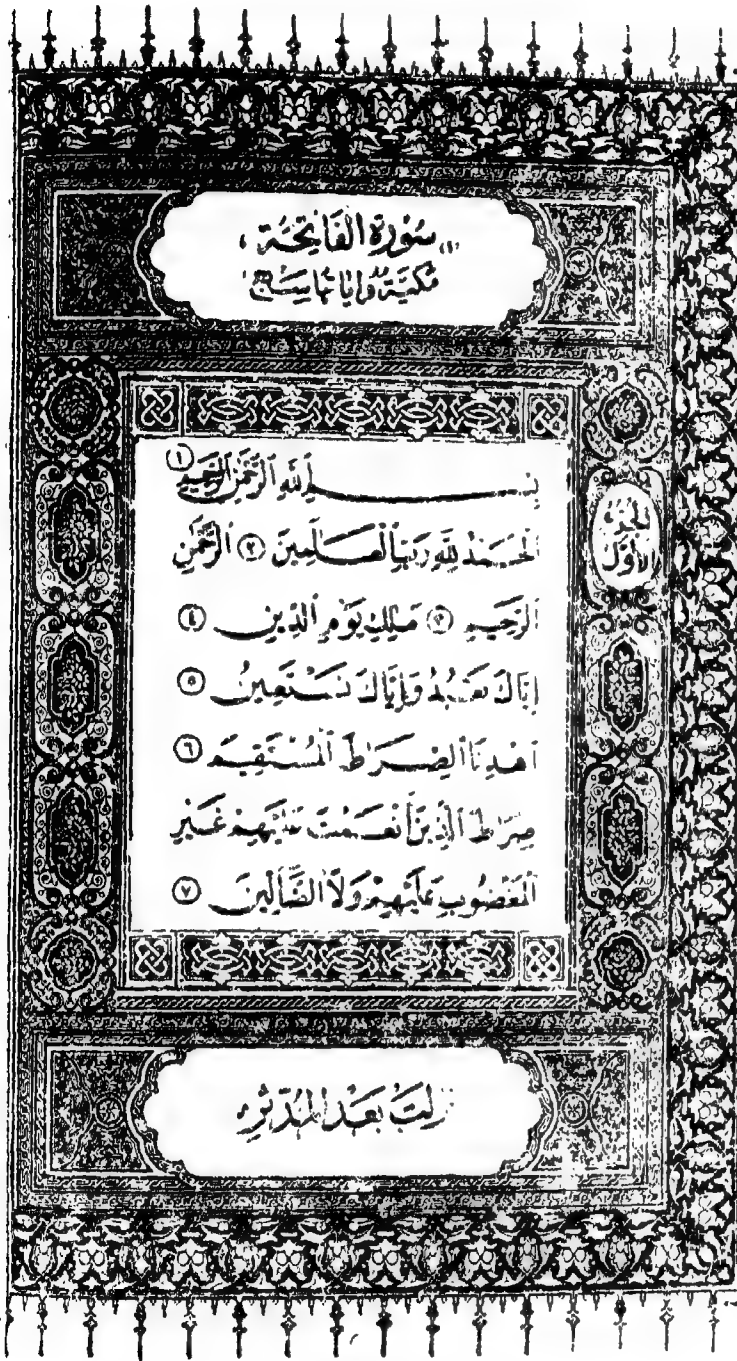 (١) سُورَةُ الْفَاتِحَةِ
مَكِّيَّة وَآيَاتُهَا سَبْع
بِسْمِ ٱللَّهِ ٱلرَّحْمَٰنِ ٱلرَّحِيمِ ١
ٱلْحَمْدُ لِلَّهِ رَبِّ ٱلْعَٰلَمِينَ ٢ ٱلرَّحْمَٰنِ
ٱلرَّحِيمِ ٣ مَٰلِكِ يَوْمِ ٱلدِّينِ ٤
إِيَّاكَ نَعْبُدُ وَإِيَّاكَ نَسْتَعِينُ ٥
ٱهْدِنَا ٱلصِّرَٰطَ ٱلْمُسْتَقِيمَ ٦
صِرَٰطَ ٱلَّذِينَ أَنْعَمْتَ عَلَيْهِمْ غَيْرِ
ٱلْمَغْضُوبِ عَلَيْهِمْ وَلَا ٱلضَّآلِّينَ ٧
الجزء
الأوّل
نزلت بَعْدَ المُدَّثِّرِ